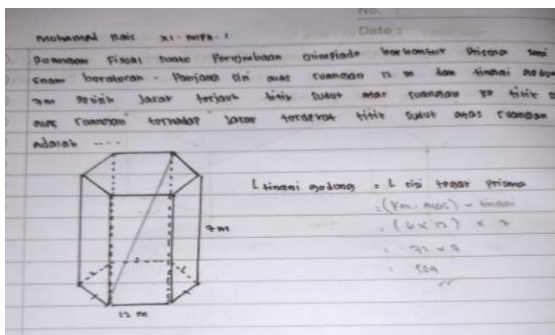 No. :
Date :
mohamad rais xi. mipa. 1
Ruangan Final suatu Perlombaan olimpiade berbentuk Prisma segi
Enam beraturan. Panjang sisi alas ruangan 12 m dan tinggi gedung
7 m selisih Jarak terjauh titik sudut atas ruangan ke titik
alas ruangan terhadap Jarak terdekat titik sudut atas ruangan
adalah ....
L tinggi gedong = L sisi tegak prisma
= (Kel. alas) x tinggi
7 m
= (6 x 12) x 7
= 72 x 7
= 504
12 m